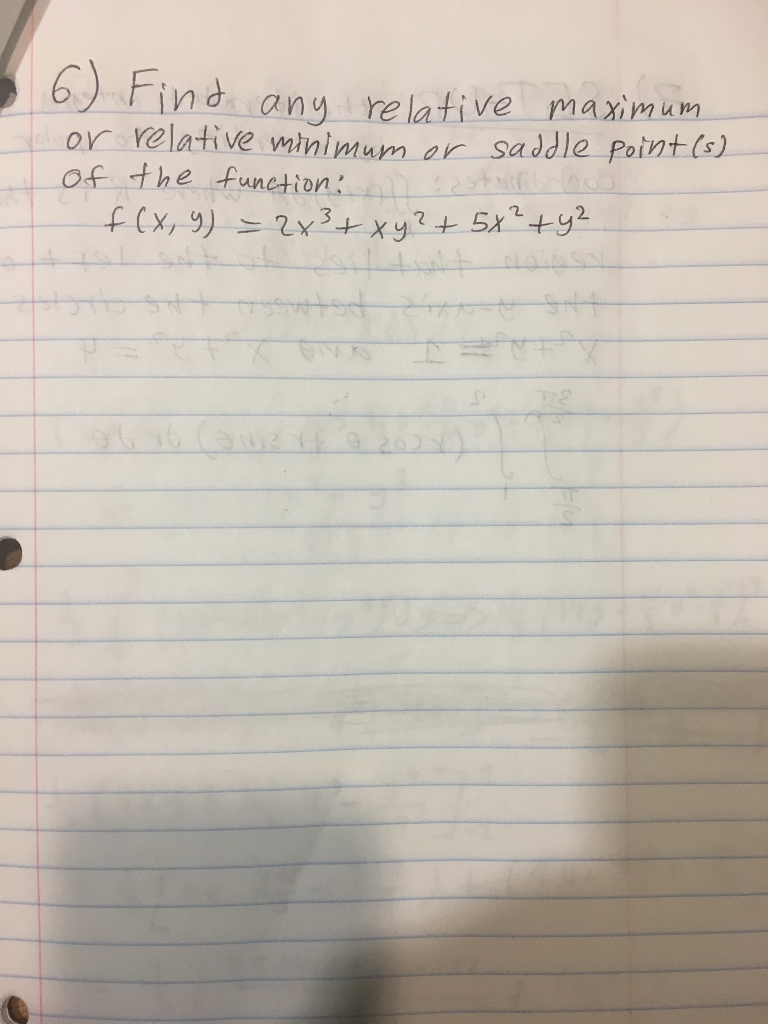 6) Find any relative maximum
or relative minimum or saddle point(s)
of the function:
f(x, y) = 2x³ + xy² + 5x² + y²